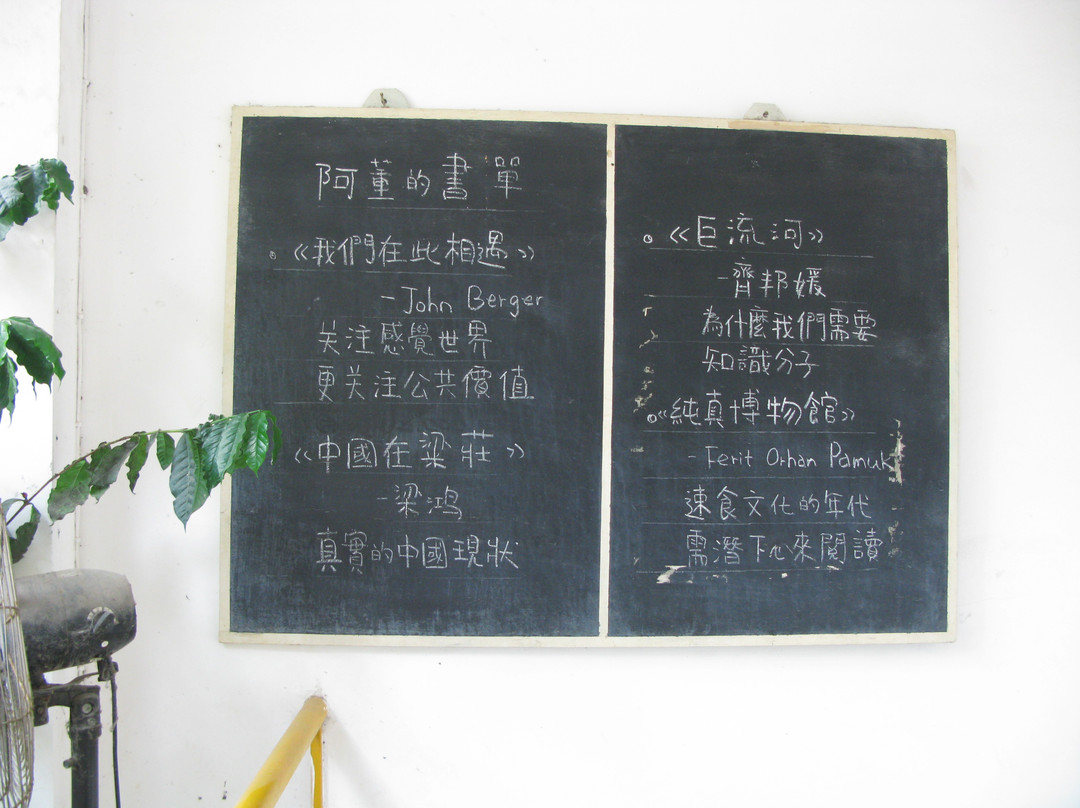 阿董的書單
《我們在此相遇》
-John Berger
关注感覺世界
更关注公共價值
《中國在梁莊》
-梁鴻
真實的中國現狀
《巨流河》
-齊邦媛
為什麼我們需要
知識分子
《純真博物館》
- Ferit Orhan Pamuk
速食文化的年代
需潛下心來閱讀